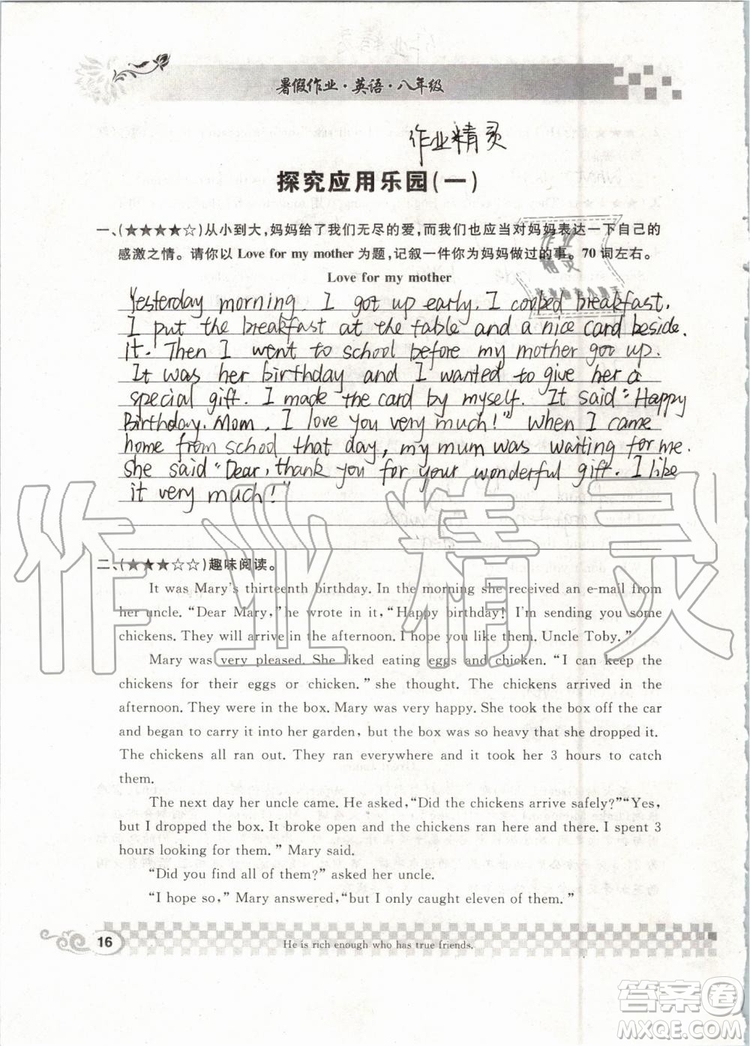 暑假作业·英语·八年级
作业精灵
探究应用乐园(一)
一、(★★★★☆)从小到大,妈妈给了我们无尽的爱,而我们也应当对妈妈表达一下自己的
感激之情。请你以 Love for my mother 为题,记叙一件你为妈妈做过的事。70 词左右。
Love for my mother
Yesterday morning. I got up early. I cooked breakfast.
I put the breakfast at the table and a nice card beside.
It. Then I went to school before my mother got up.
It was her birthday and I wanted to give her a
special gift. I made the card by myself. It said "Happy
Birthday. Mom. I love you very much!" When I came
home from school that day, my mum was waiting for me.
She said "Dear, thank you for your wonderful gift. I like
it very much!"
作业精灵
二、(★★★☆☆)趣味阅读。
It was Mary's thirteenth birthday. In the morning she received an e-mail from
her uncle. "Dear Mary," he wrote in it, "Happy birthday! I'm sending you some
chickens. They will arrive in the afternoon. I hope you like them. Uncle Toby."
Mary was very pleased. She liked eating eggs and chicken. "I can keep the
chickens for their eggs or chicken." she thought. The chickens arrived in the
afternoon. They were in the box. Mary was very happy. She took the box off the car
and began to carry it into her garden, but the box was so heavy that she dropped it.
The chickens all ran out. They ran everywhere and it took her 3 hours to catch
them.
The next day her uncle came. He asked, "Did the chickens arrive safely?" "Yes,
but I dropped the box. It broke open and the chickens ran here and there. I spent 3
hours looking for them." Mary said.
"Did you find all of them?" asked her uncle.
"I hope so," Mary answered, "but I only caught eleven of them."
16
He is rich enough who has true friends.
答案圈
MXQE.COM